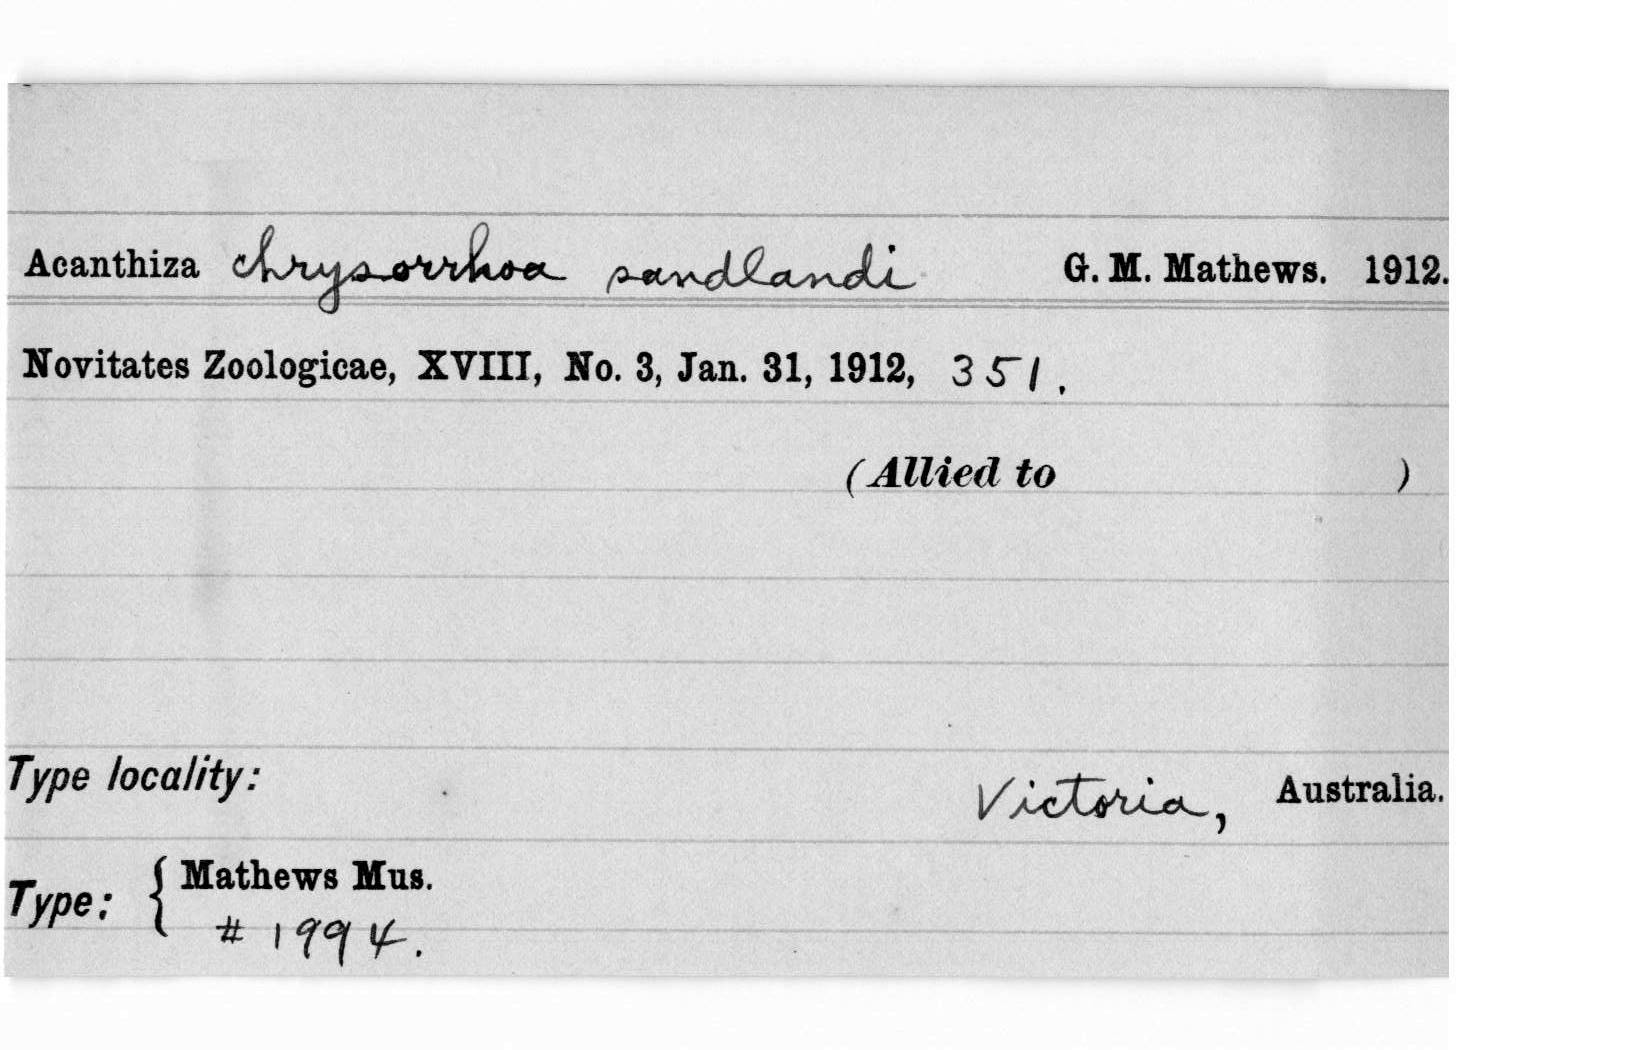 Acanthiza chrysorrhoa sandlandi G. M. Mathews. 1912.
Novitates Zoologicae, XVIII, No. 3, Jan. 31, 1912, 351.
(Allied to )
Type locality: Victoria, Australia.
Type: { Mathews Mus.
# 1994.